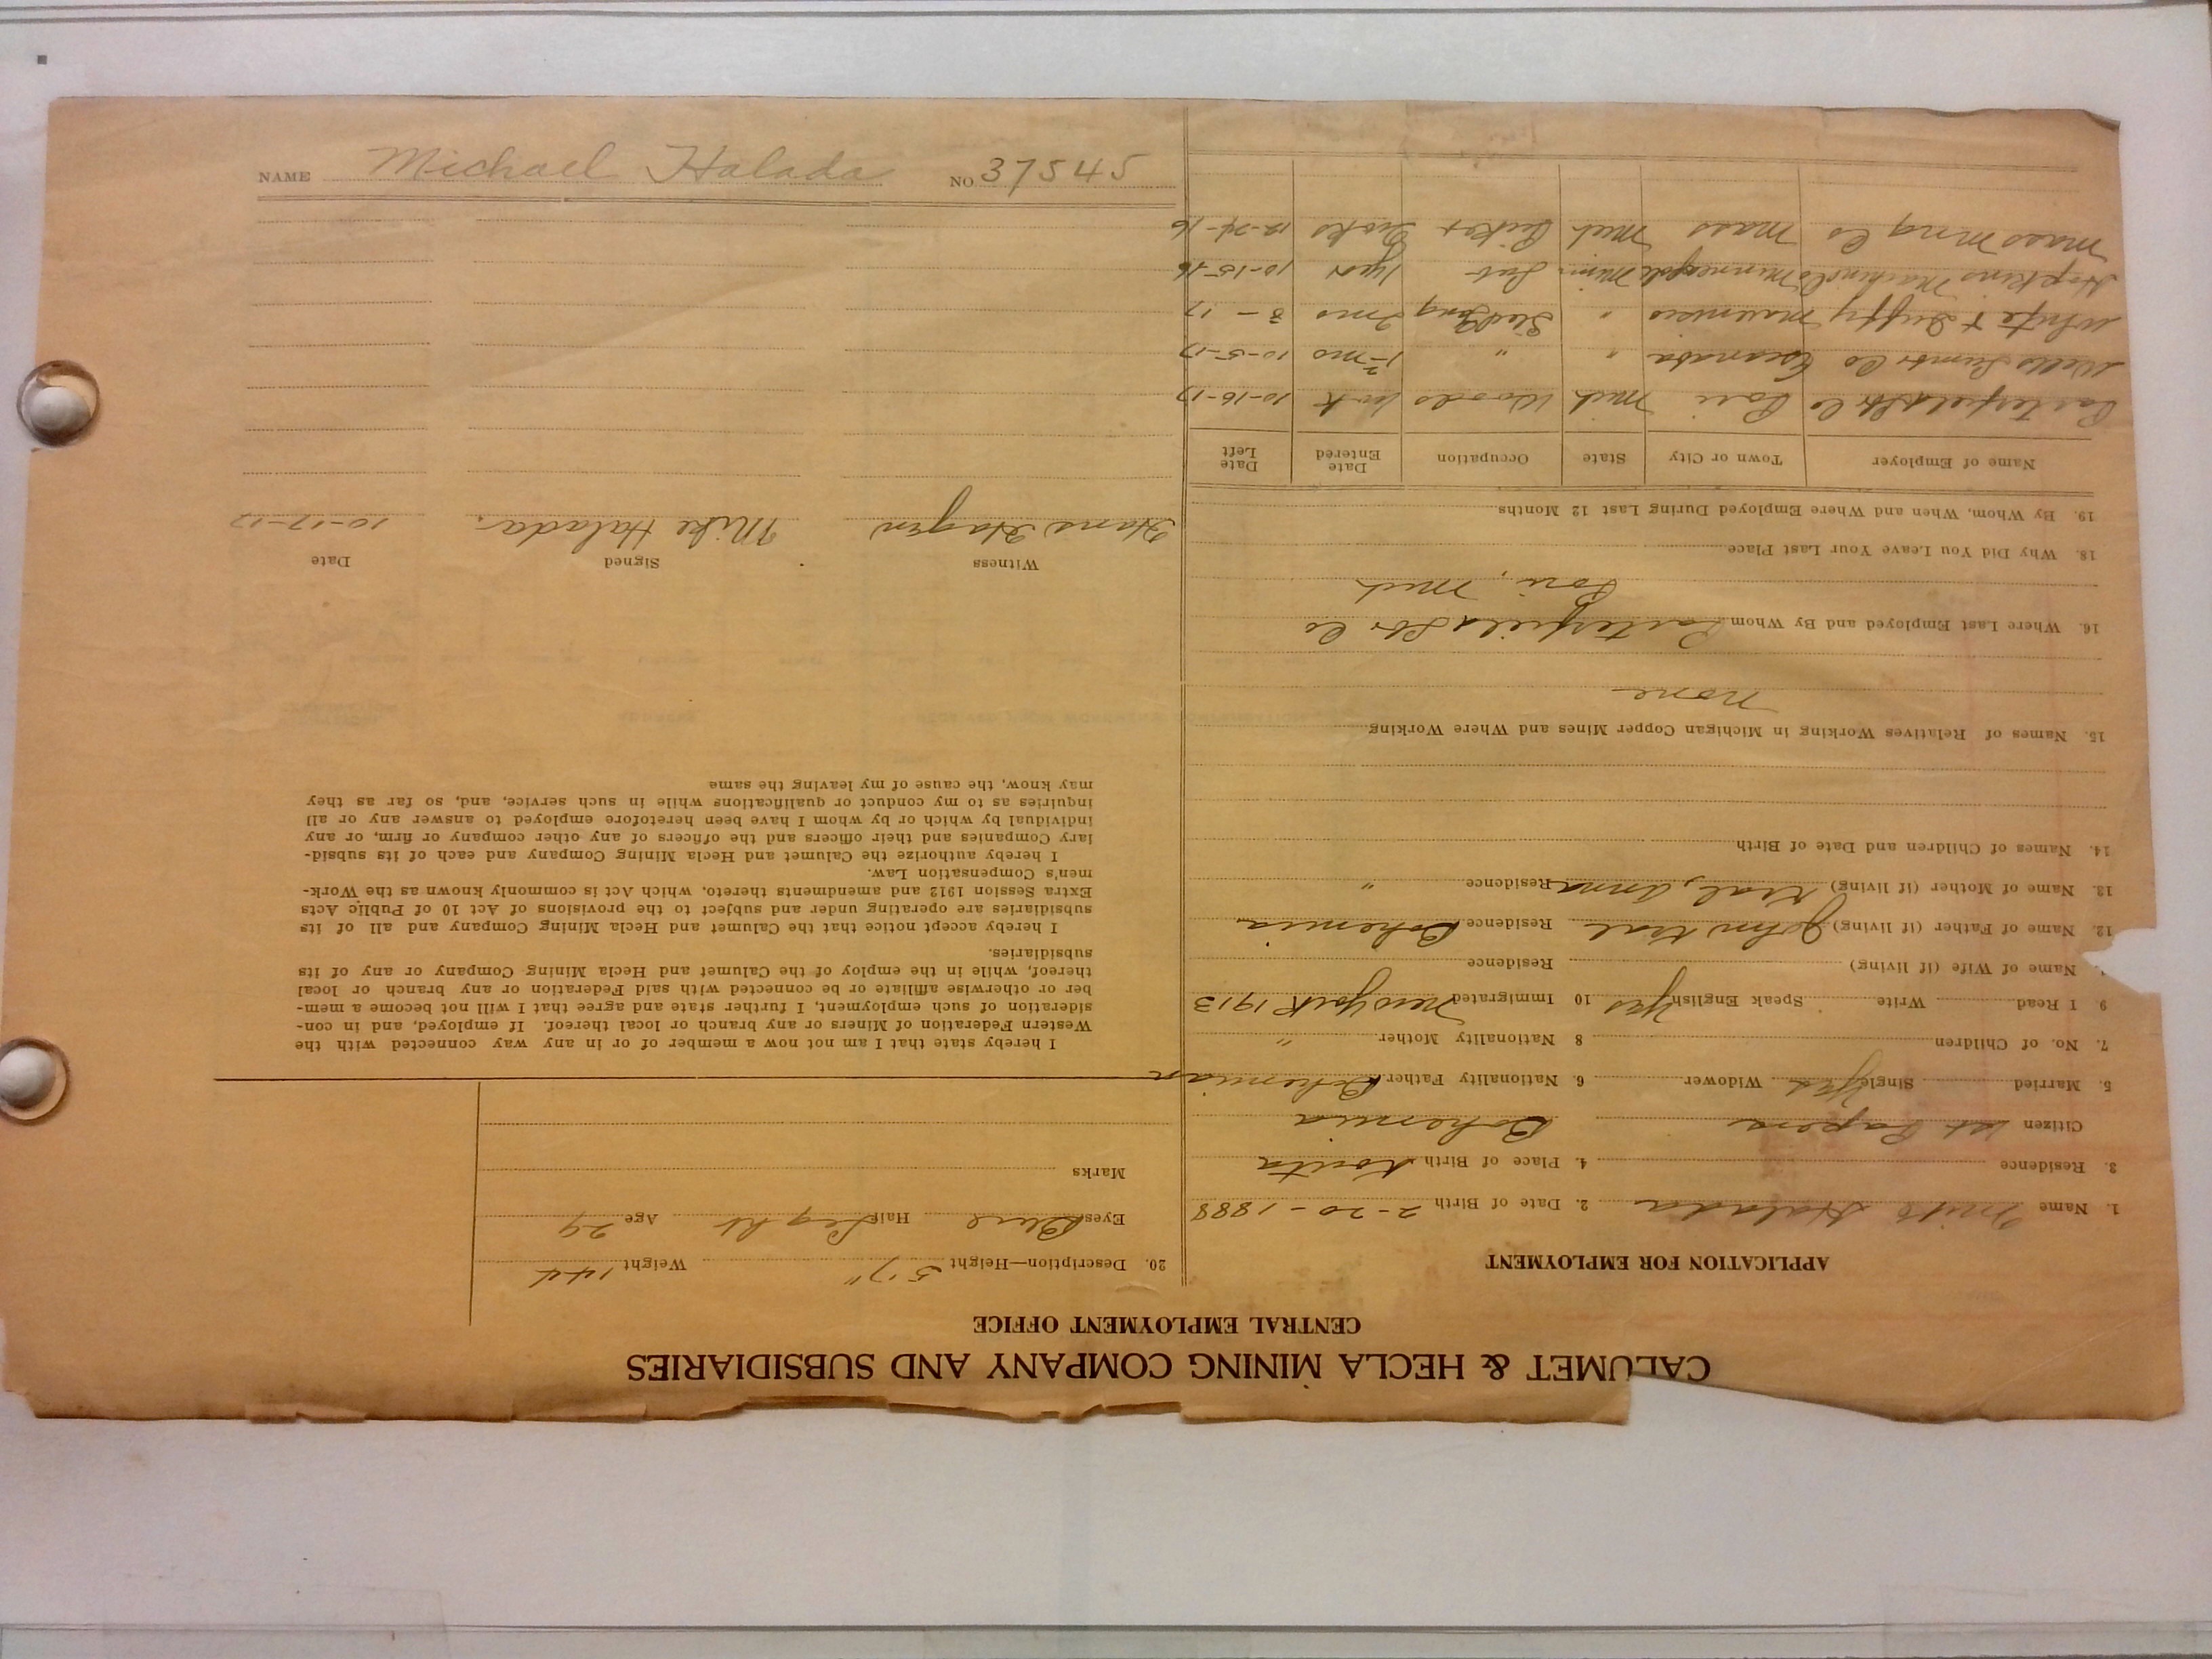 CALUMET & HECLA MINING COMPANY AND SUBSIDIARIES
CENTRAL EMPLOYMENT OFFICE
APPLICATION FOR EMPLOYMENT
1. Name Mike Halada 2. Date of Birth 2-20-1888
3. Residence 4. Place of Birth
Citizen 1st Papers Bohemia
5. Married Single Yes Widower 6. Nationality Father Bohemian
7. No. of Children 8 Nationality Mother "
9 I Read Write Speak English Yes 10 Immigrated New York 1913
Name of Wife (if living) Residence
12. Name of Father (if living) John Residence Bohemia
13. Name of Mother (if living) Anna Residence "
14. Names of Children and Date of Birth
15. Names of Relatives Working in Michigan Copper Mines and Where Working
None
16. Where Last Employed and By Whom Lbr Co
Mich
18. Why Did You Leave Your Last Place
19. By Whom, When and Where Employed During Last 12 Months
Name of Employer Town or City State Occupation Date Entered Date Left
Lbr Co Mich Woods 10-16-17
Wells Lumbr Co Escanaba " " 10-5-17
White & Duffy " 3 - 17
Hopkins Machine Co Minneapolis Minn 1 yr 10-15-16
Mass Mng Co Mass Mich 12-24-16
20. Description—Height 5'7" Weight 144
Eyes Blue Hair Light Age 29
Marks
I hereby state that I am not now a member of or in any way connected with the
Western Federation of Miners or any branch or local thereof. If employed, and in con-
sideration of such employment, I further state and agree that I will not become a mem-
ber or otherwise affiliate or be connected with said Federation or any branch or local
thereof, while in the employ of the Calumet and Hecla Mining Company or any of its
subsidiaries.
I hereby accept notice that the Calumet and Hecla Mining Company and all of its
subsidiaries are operating under and subject to the provisions of Act 10 of Public Acts
Extra Session 1912 and amendments thereto, which Act is commonly known as the Work-
men's Compensation Law.
I hereby authorize the Calumet and Hecla Mining Company and each of its subsid-
iary Companies and their officers and the officers of any other company or firm, or any
individual by which or by whom I have been heretofore employed to answer any or all
inquiries as to my conduct or qualifications while in such service, and, so far as they
may know, the cause of my leaving the same
Witness Signed Date
Hans Hagen Mike Halada. 10-17-17
NAME Michael Halada NO 37545